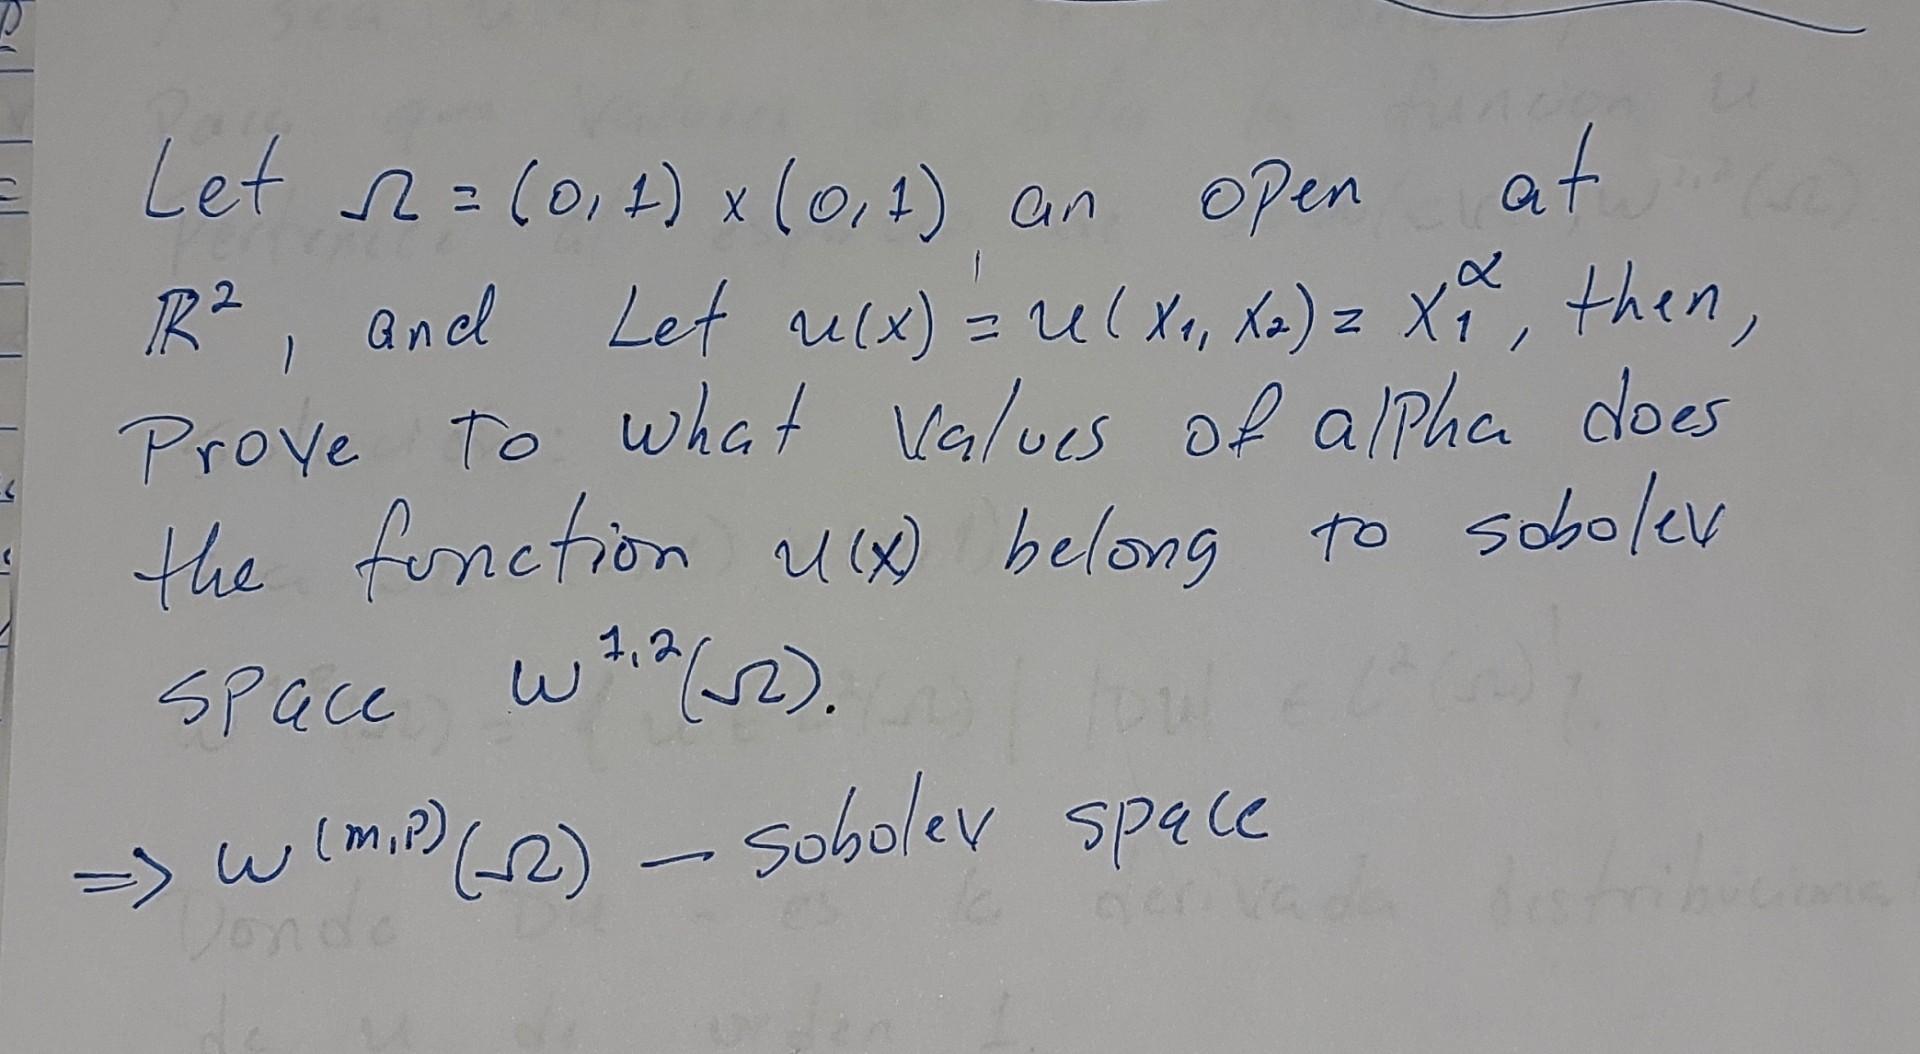 Let Ω = (0,1) x (0,1) an open at
ℝ², and Let u(x) = u(x₁, x₂) = x₁^α, then,
Prove to what values of alpha does
the function u(x) belong to sobolev
space W^{1,2}(Ω).
⇒ W^{(m,p)}(Ω) – Sobolev space